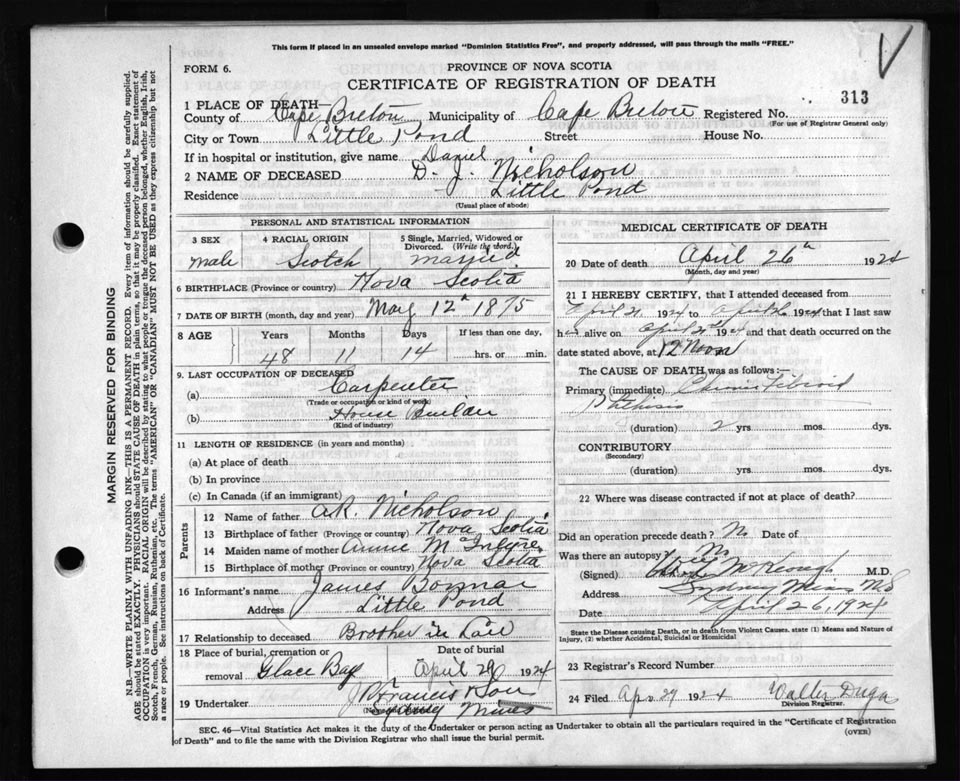 This form if placed in an unsealed envelope marked "Dominion Statistics Free", and properly addressed, will pass through the mails "FREE."
FORM 6.
PROVINCE OF NOVA SCOTIA
CERTIFICATE OF REGISTRATION OF DEATH
1 PLACE OF DEATH—
County of Cape Breton Municipality of Cape Breton Registered No. 313
(For use of Registrar General only)
City or Town Little Pond Street House No.
If in hospital or institution, give name
Daniel
2 NAME OF DECEASED D. J. Nicholson
Residence Little Pond
(Usual place of abode)
PERSONAL AND STATISTICAL INFORMATION
3 SEX 4 RACIAL ORIGIN 5 Single, Married, Widowed or Divorced. (Write the word.)
male Scotch married
6 BIRTHPLACE (Province or country) Nova Scotia
7 DATE OF BIRTH (month, day and year) May 12th 1875
8 AGE Years Months Days If less than one day,
48 11 14 hrs. or min.
9. LAST OCCUPATION OF DECEASED
(a) Carpenter
(Trade or occupation or kind of work)
(b) House
(Kind of industry)
11 LENGTH OF RESIDENCE (in years and months)
(a) At place of death
(b) In province
(c) In Canada (if an immigrant)
Parents
12 Name of father A.R. Nicholson
13 Birthplace of father (Province or country) Nova Scotia
14 Maiden name of mother Annie
15 Birthplace of mother (Province or country) Nova Scotia
16 Informant's name James
Address Little Pond
17 Relationship to deceased Brother in Law
18 Place of burial, cremation or removal Glace Bay
Date of burial April 29 1924
19 Undertaker Francis & Son
Sydney Mines
MEDICAL CERTIFICATE OF DEATH
20 Date of death April 26th 1924
(Month, day and year)
21 I HEREBY CERTIFY, that I attended deceased from
April 21 1924 to April 1924 that I last saw
h alive on April 1924 and that death occurred on
date stated above, at 12 Noon
The CAUSE OF DEATH was as follows:—
Primary (immediate) Chronic Fibroid
Phthisis
(duration) 2 yrs. mos. dys.
CONTRIBUTORY
(Secondary)
(duration) yrs. mos. dys.
22 Where was disease contracted if not at place of death?
Did an operation precede death? No Date of
Was there an autopsy? No
(Signed) McKeough M.D.
Address Sydney Mines NS
Date April 26, 1924
State the Disease causing Death, or in death from Violent Causes. state (1) Means and Nature of Injury, (2) whether Accidental, Suicidal or Homicidal
23 Registrar's Record Number
24 Filed Apr 29 1924 Walter
Division Registrar.
SEC. 46—Vital Statistics Act makes it the duty of the Undertaker or person acting as Undertaker to obtain all the particulars required in the "Certificate of Registration
of Death" and to file the same with the Division Registrar who shall issue the burial permit.
(OVER)
MARGIN RESERVED FOR BINDING
N.B.—WRITE PLAINLY WITH UNFADING INK—THIS IS A PERMANENT RECORD. Every item of information should be carefully supplied.
AGE should be stated EXACTLY. PHYSICIANS should STATE CAUSE OF DEATH in plain terms, so that it may be properly classified. Exact statement of
OCCUPATION is very important. RACIAL ORIGIN will be described by stating to what people or tongue the deceased person belonged, whether English, Irish,
Scotch, French, German, Russian, Ruthenian, etc. The terms "AMERICAN" or "CANADIAN" MUST NOT BE USED as they express citizenship but not
a race or people. See instructions on back of Certificate.